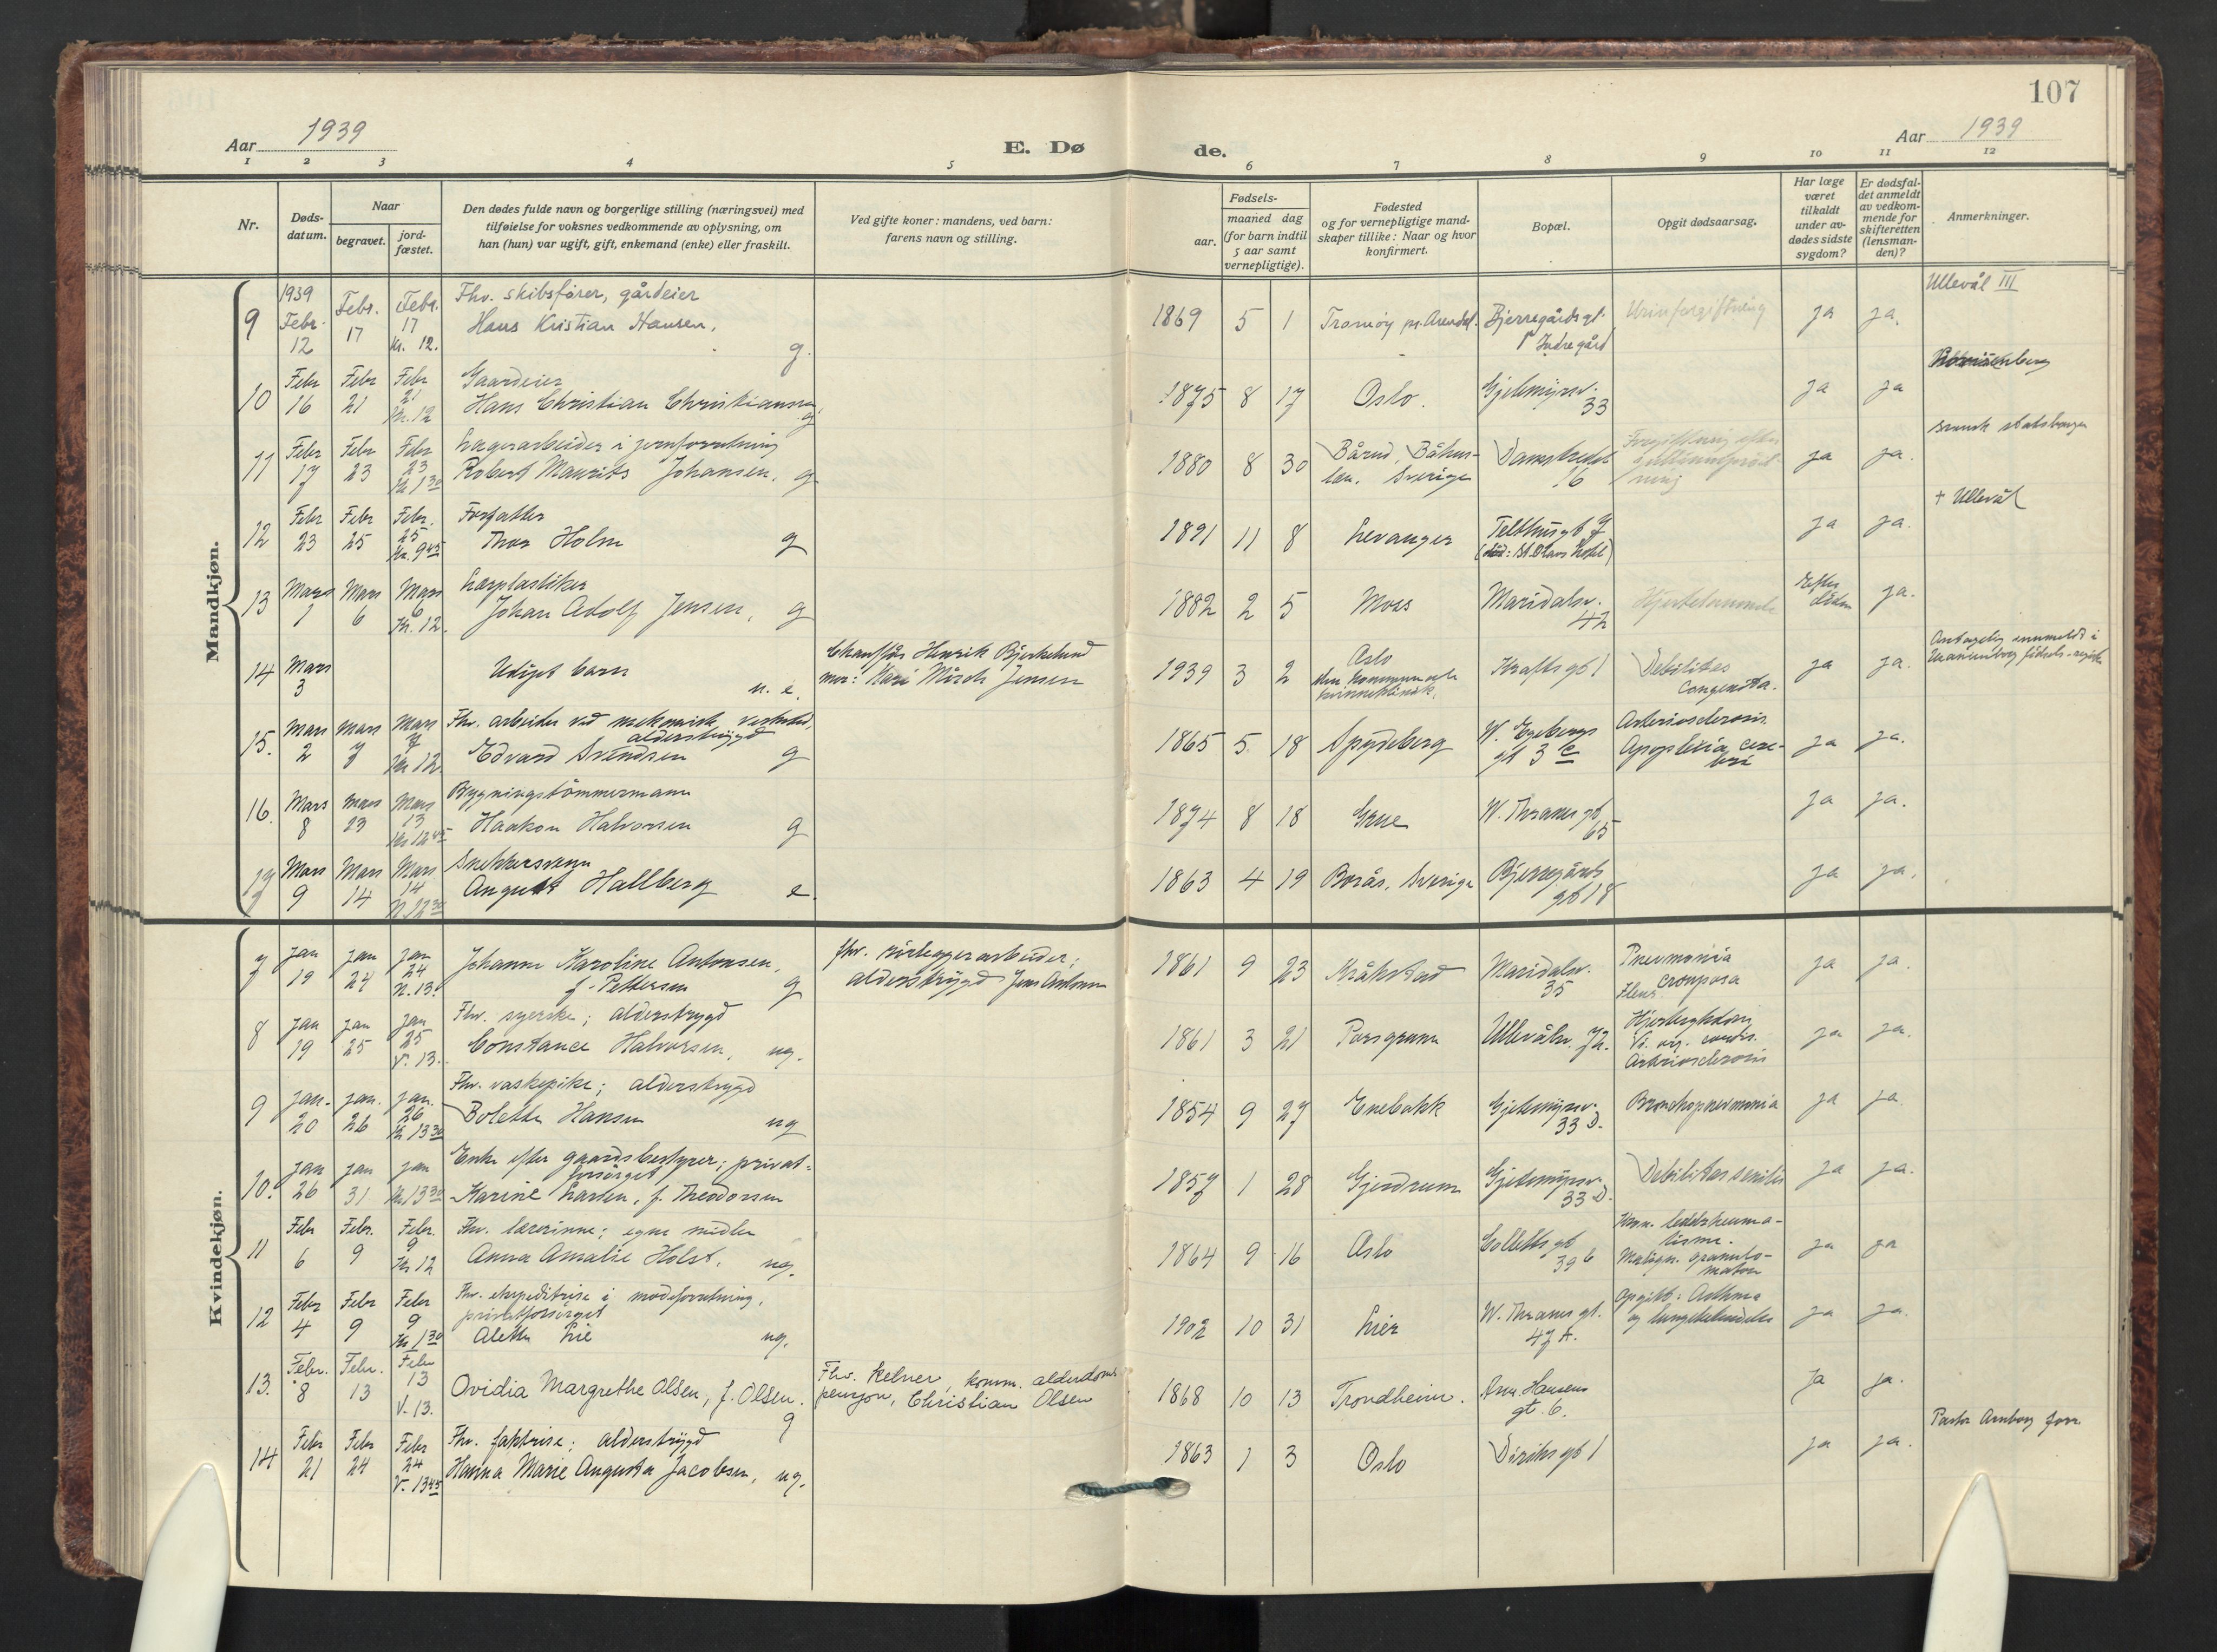 107
Aar 1939
E. Dø
de.
Aar 1939
1 2 3 4 5 6 7 8 9 10 11 12
Nr.
Døds-
datum.
Naar
begravet.
jord-
fæstet.
Den dødes fulde navn og borgerlige stilling (næringsvei) med
tilføielse for voksnes vedkommende av oplysning, om
han (hun) var ugift, gift, enkemand (enke) eller fraskilt.
Ved gifte koner: mandens, ved barn:
farens navn og stilling.
Fødsels-
aar.
maaned dag
(for barn indtil
5 aar samt
vernepligtige).
Fødested
og for vernepligtige mand-
skaper tillike: Naar og hvor
konfirmert.
Bopæl.
Opgit dødsaarsag.
Har læge
været
tilkaldt
under av-
dødes sidste
sygdom?
Er dødsfal-
det anmeldt
av vedkom-
mende for
skifteretten
(lensman-
den)?
Anmerkninger.
Mandkjøn.
9
1939
Febr.
12
Febr.
17
Febr.
17
kl. 12.
Fhv. skibsfører, gårdeier
Hans Kristian Hansen,
g.
1869 5 1
Tromøy pr. Arendal.
Bjerregårdsgt.
Indregård
Urinforgiftning
ja ja.
Ullevål III
10
Febr
16
Febr
21
Febr
21
Kl. 12
Gaardeier
Hans Christian Christiansen,
g
1875 8 17
Oslo.
Gjetemyrsv.
33
ja ja
11
Febr
17
Febr
23
Febr
23
Kl 1 30
Lagerarbeider i jernforretning
Robert Maurits Johansen. g
1880 8 30
Bårud, Båhus-
län. Sverige
Damstredet
16
Forgiftning efter
ja ja.
svensk statsborger
12
Febr
23
Febr
25
Febr.
25
Kl. 9 45
Forfatter
Thor Holm g
1891 11 8
Levanger
Telthusgt 7
(död: St. Olavs hotel)
ja ja.
+ Ullevål
13
Mars
1
Mars
6
Mars
6
Kl. 12.
Johan Adolf Jensen, g
1882 2 5
Moss
Maridalsv.
42
Efter
döden
ja.
14
Mars
3
Udøpt barn
u. e.
Chauffør Henrik Bjerkelund
mor: Kari Jensen
1939 3 2
Oslo
den kommunale
kvinneklinik.
Kraftsgt 1
Debilitas
congenita.
ja ja.
Antagelig innmeldt i
fødsels-register
15.
Mars
2
Mars
7
Mars
7
Kl 12
Fhv. arbeider ved mekanisk verksted,
alderstrygd
Edvard Svendsen g
1865 5 18
Spydeberg
W. Egebergs
gt 3 c
Arteriosclerosis
Apoplexia cere-
bri
ja ja.
16.
Mars
8
Mars
23
Mars
13
Kl 12 45
Bygningstømmermann
Haakon Halvorsen g
1874 8 18
Grue
W. Thranes gt
65
ja ja.
17
Mars
9
Mars
14
Mars
14
Kl 12 30
Snekkersvenn
August Hallberg e.
1863 4 19
Borås, Sverige
Bjerregårds
gt 18
ja ja.
Kvindekjøn.
7
Jan
19
Jan
24
Jan
24
N. 13.
Johanne Karoline Antonsen,
f. Pettersen g
fhv. rørleggerarbeider;
alderstrygd Jens Antonsen
1861 9 23
Kråkstad
Maridalsv.
35
Pneumonia
crouposa
ja ja.
8
Jan
19
Jan
25
Jan
25
V. 13.
Fhv. syerske; alderstrygd
Constance Halvorsen, ug.
1861 3 21
Porsgrunn
Ullevålsv. 72.
Hjertesykdom
Vi. org. cordis.
Arteriosclerosis
ja ja.
9
Jan.
20
Jan.
26
Jan.
26
Kl 13 30
Fhv. vaskepike; alderstrygd
Bolette Hansen ug
1854 9 27
Enebakk
Gjetemyrsv.
33 D.
Bronchopneumonia
ja ja.
10.
Jan
26
Jan
31
Jan
Kl 13 30
Enke efter gaardsbestyrer; privat-
forsørget
Karine Larsen, f. Theodorsen
1857 1 28
Gjerdrum
Gjetemyrsv.
33 D.
Debilitas senilis
ja ja.
11
Febr
6
Febr.
9
Febr.
9
Kl 12
Fhv. lærerinne; egne midler
Anna Amalie Holst. ug.
1864 9 16
Oslo
Colletts gt
39 b
Kron. leddrheuma-
tisme.
Malign. granulo-
matose
ja ja
12
Febr
4
Febr
9
Febr
9
Kl 1 30
Fhv. ekspeditrise i moteforretning,
privatforsørget
Alette Lie ug.
1902 10 31
Lier
W. Thranes gt.
47 A.
Opgitt: Asthma
og lungebetendelse
ja ja.
13.
Febr.
8
Febr.
13
Febr
13
V. 13.
Ovidia Margrethe Olsen, f. Olsen.
g
Fhv. Kelner, komm. alderdoms
pensjon, Christian Olsen
1868 10 13
Trondheim.
Hansens
gt. 6.
Ja ja.
14
Febr
21
Febr
24
Febr
24
V. 13 45
Fhv. faktrise; alderstrygd
Hanna Marie Augusta Jacobsen, ug.
1863 1 3
Oslo
Diriks gt 1
ja ja.
Pastor Arnborg forr.